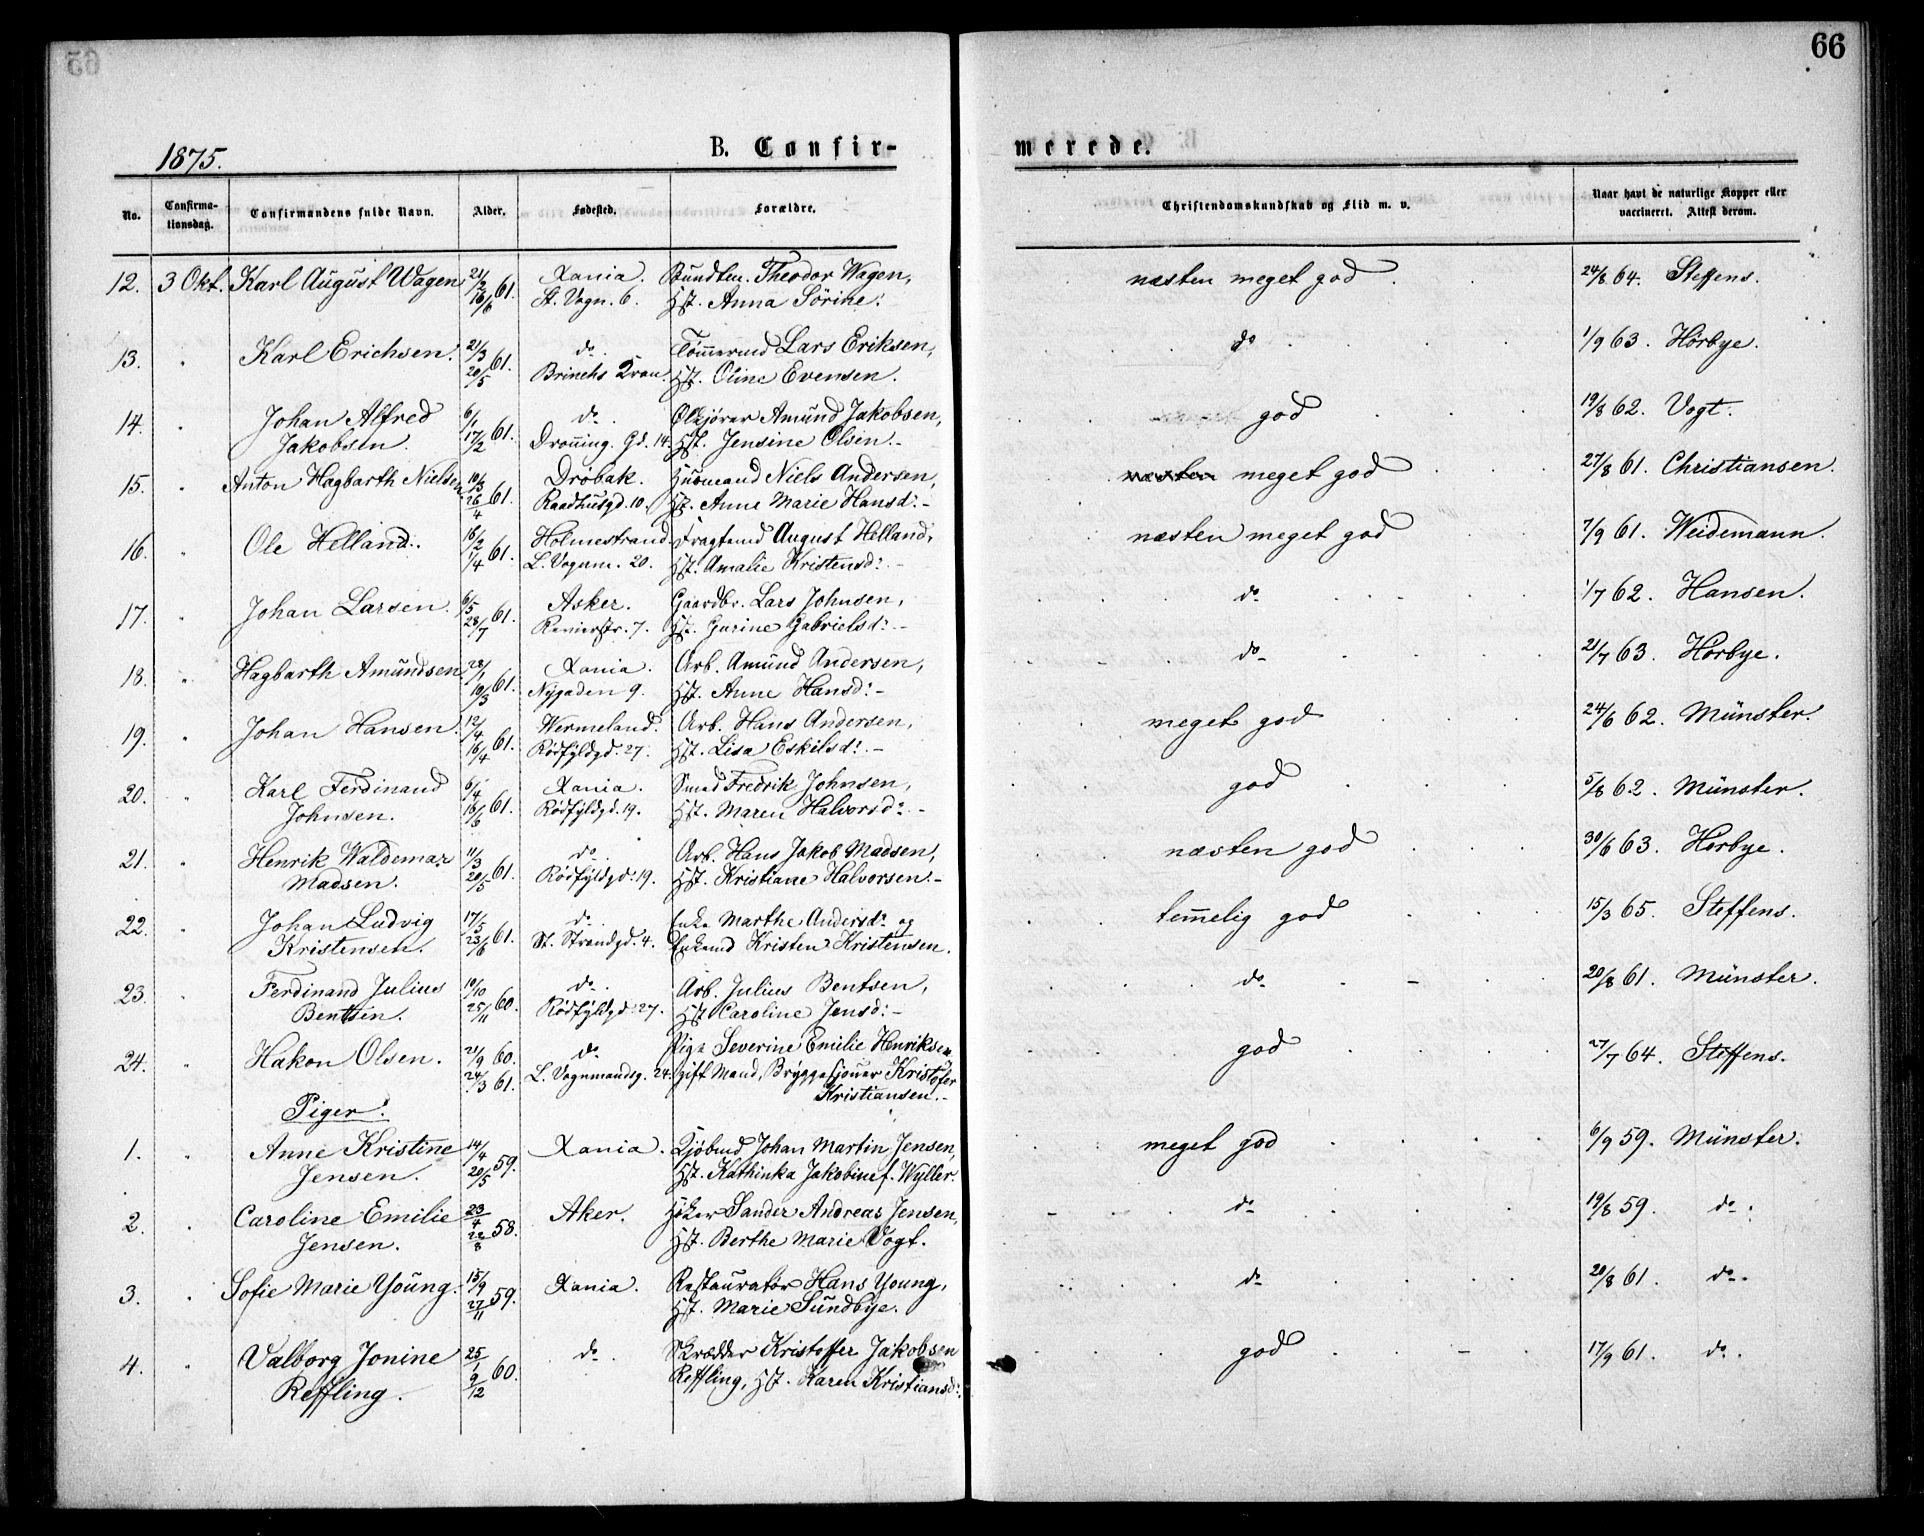 66
1875. B. Confir- merede.
No. Confirma-tionsdag. Confirmandens fulde Navn. Alder. Fødested. Forældre. Christendomskundskab og Flid m. v. Naar havt de naturlige Kopper eller vaccineret. Attest derom.
12. 3 Okt. Karl August Wagen 21/2 61. Xania. Bundtm. Theodor Wagen, næsten meget god 24/8 64. Steffens.
16/6 St. Vogn. 6. Hst. Anna Sörine.
13. " Karl Erichsen. 21/3 61. do. Tömmermd Lars Eriksen, do 1/9 63. Hörbye.
20/5 Brinchs Hst. Oline Evensen.
14. " Johan Alfred 6/1 61. do. Ölkjörer Amund Jakobsen, god 19/8 62. Vogt.
Jakobsen. 17/2 Dronning. Gd. 14. Hst. Jensine Olsen.
15. " Anton Hagbarth Nielsen 10/3 61. Dröbak. Husmand Niels Andersen, næsten meget god 27/8 61. Christiansen.
26/4 Raadhusgd. 10. Hst. Anne Marie Hansd:
16. " Ole Helland. 16/2 61. Holmestrand. Fragtemd August Helland, næsten meget god 7/9 61. Weidemann.
1/4 L. Vognm. 20. Hst. Amalie Kristensd:
17. " Johan Larsen. 6/5 61. Asker. Gaardbr. Lars Johnsen, do 1/7 62. Hansen.
28/7 Revierstr. 7. Hst. Gurine Gabrielsd:
18. " Hagbarth Amundsen 28/1 61. Xania. Arb. Amund Andersen, do 21/7 63. Hörbye.
10/3 Nygaden 9. Hst. Anne Hansd:
19. " Johan Hansen. 12/4 61. Wermeland. Arb. Hans Andersen, meget god 24/6 62. Münster.
16/4 Rödfyldgd. 27. Hst. Lisa Eskilsd:
20. " Karl Ferdinand 6/4 61. Xania. Smed Fredrik Johnsen, god 5/8 62. Münster.
Johnsen. 16/6 Rödfyldgd. 19. Hst. Maren Halvorsd:
21. " Henrik Waldemar 11/3 61. do. Arb. Hans Jakob Madsen, næsten god 30/6 63. Hörbye.
Madsen. 20/5 Rödfyldgd. 19. Hst. Kristiane Halvorsen.
22. " Johan Ludvig 17/5 61. do. Enke Marthe Andersd: og temmelig god 15/3 65. Steffens.
Kristensen. 23/6 St. Strandgd. 4. Enkemd Kristen Kristensen.
23. " Ferdinand Julius 10/10 60. do. Arb. Julius Bentsen, do 20/8 61. Münster.
Bentsen. 25/11 Rödfyldgd. 27. Hst Caroline Jensd:
24. " Hakon Olsen. 21/9 60. do. Pige Severine Emilie Henriksen god 27/7 64. Steffens.
24/3 61. L. Vognmandsg. 24. gift Mand, Bryggesjouer Kristofer
Kristiansen.
Piger.
1. " Anne Kristine 14/4 59. Xania. Kjöbmd Johan Martin Jensen, meget god 6/9 59. Münster.
Jensen. 20/5 Hst. Kathinka Jakobine f. Wyller.
2. " Caroline Emilie 23/4 58. Aker. Höker Sander Andreas Jensen, do 19/8 59. do.
Jensen. 22/8 Hst. Berthe Marie Vogt.
3. " Sofie Marie Young. 15/9 59. Xania. Restauratör Hans Young, do 20/8 61. do.
27/11 Hst. Marie Sundbye.
4. " Valborg Jonine 25/1 60. do. Skrædder Kristoffer Jakobsen god 17/9 61. do.
Reffling. 9/12 Reffling, Hst. Karen Kristiansd: